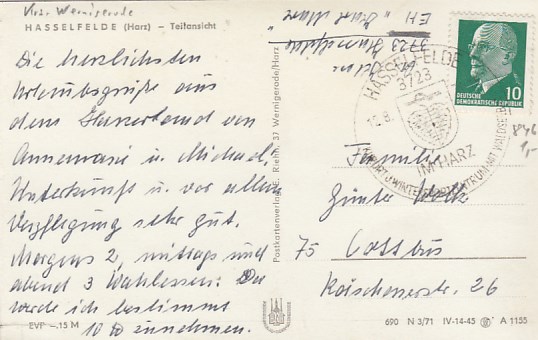 Krs. Wernigerode
HASSELFELDE (Harz) – Teilansicht
Die herzlichsten
Urlaubsgrüße aus
dem Harzerland von
Annemarie u. Michael,
Unterkunft u. vor allem
Verpflegung sehr gut.
Morgens 2, mittags und
abend 3 Wahlessen. Da
werde ich bestimmt
10 zunehmen.
EVP –.15 M
Postkartenverlag E. Riehn, 37 Wernigerode/Harz
EH "Ernst
3723 Hasselfelde
HASSELFELDE
3723
IM HARZ
DEUTSCHE
DEMOKRATISCHE REPUBLIK
10
846
1,-
Familie
Günter
75 Cottbus
26
690 N 3/71 IV-14-45 A 1155